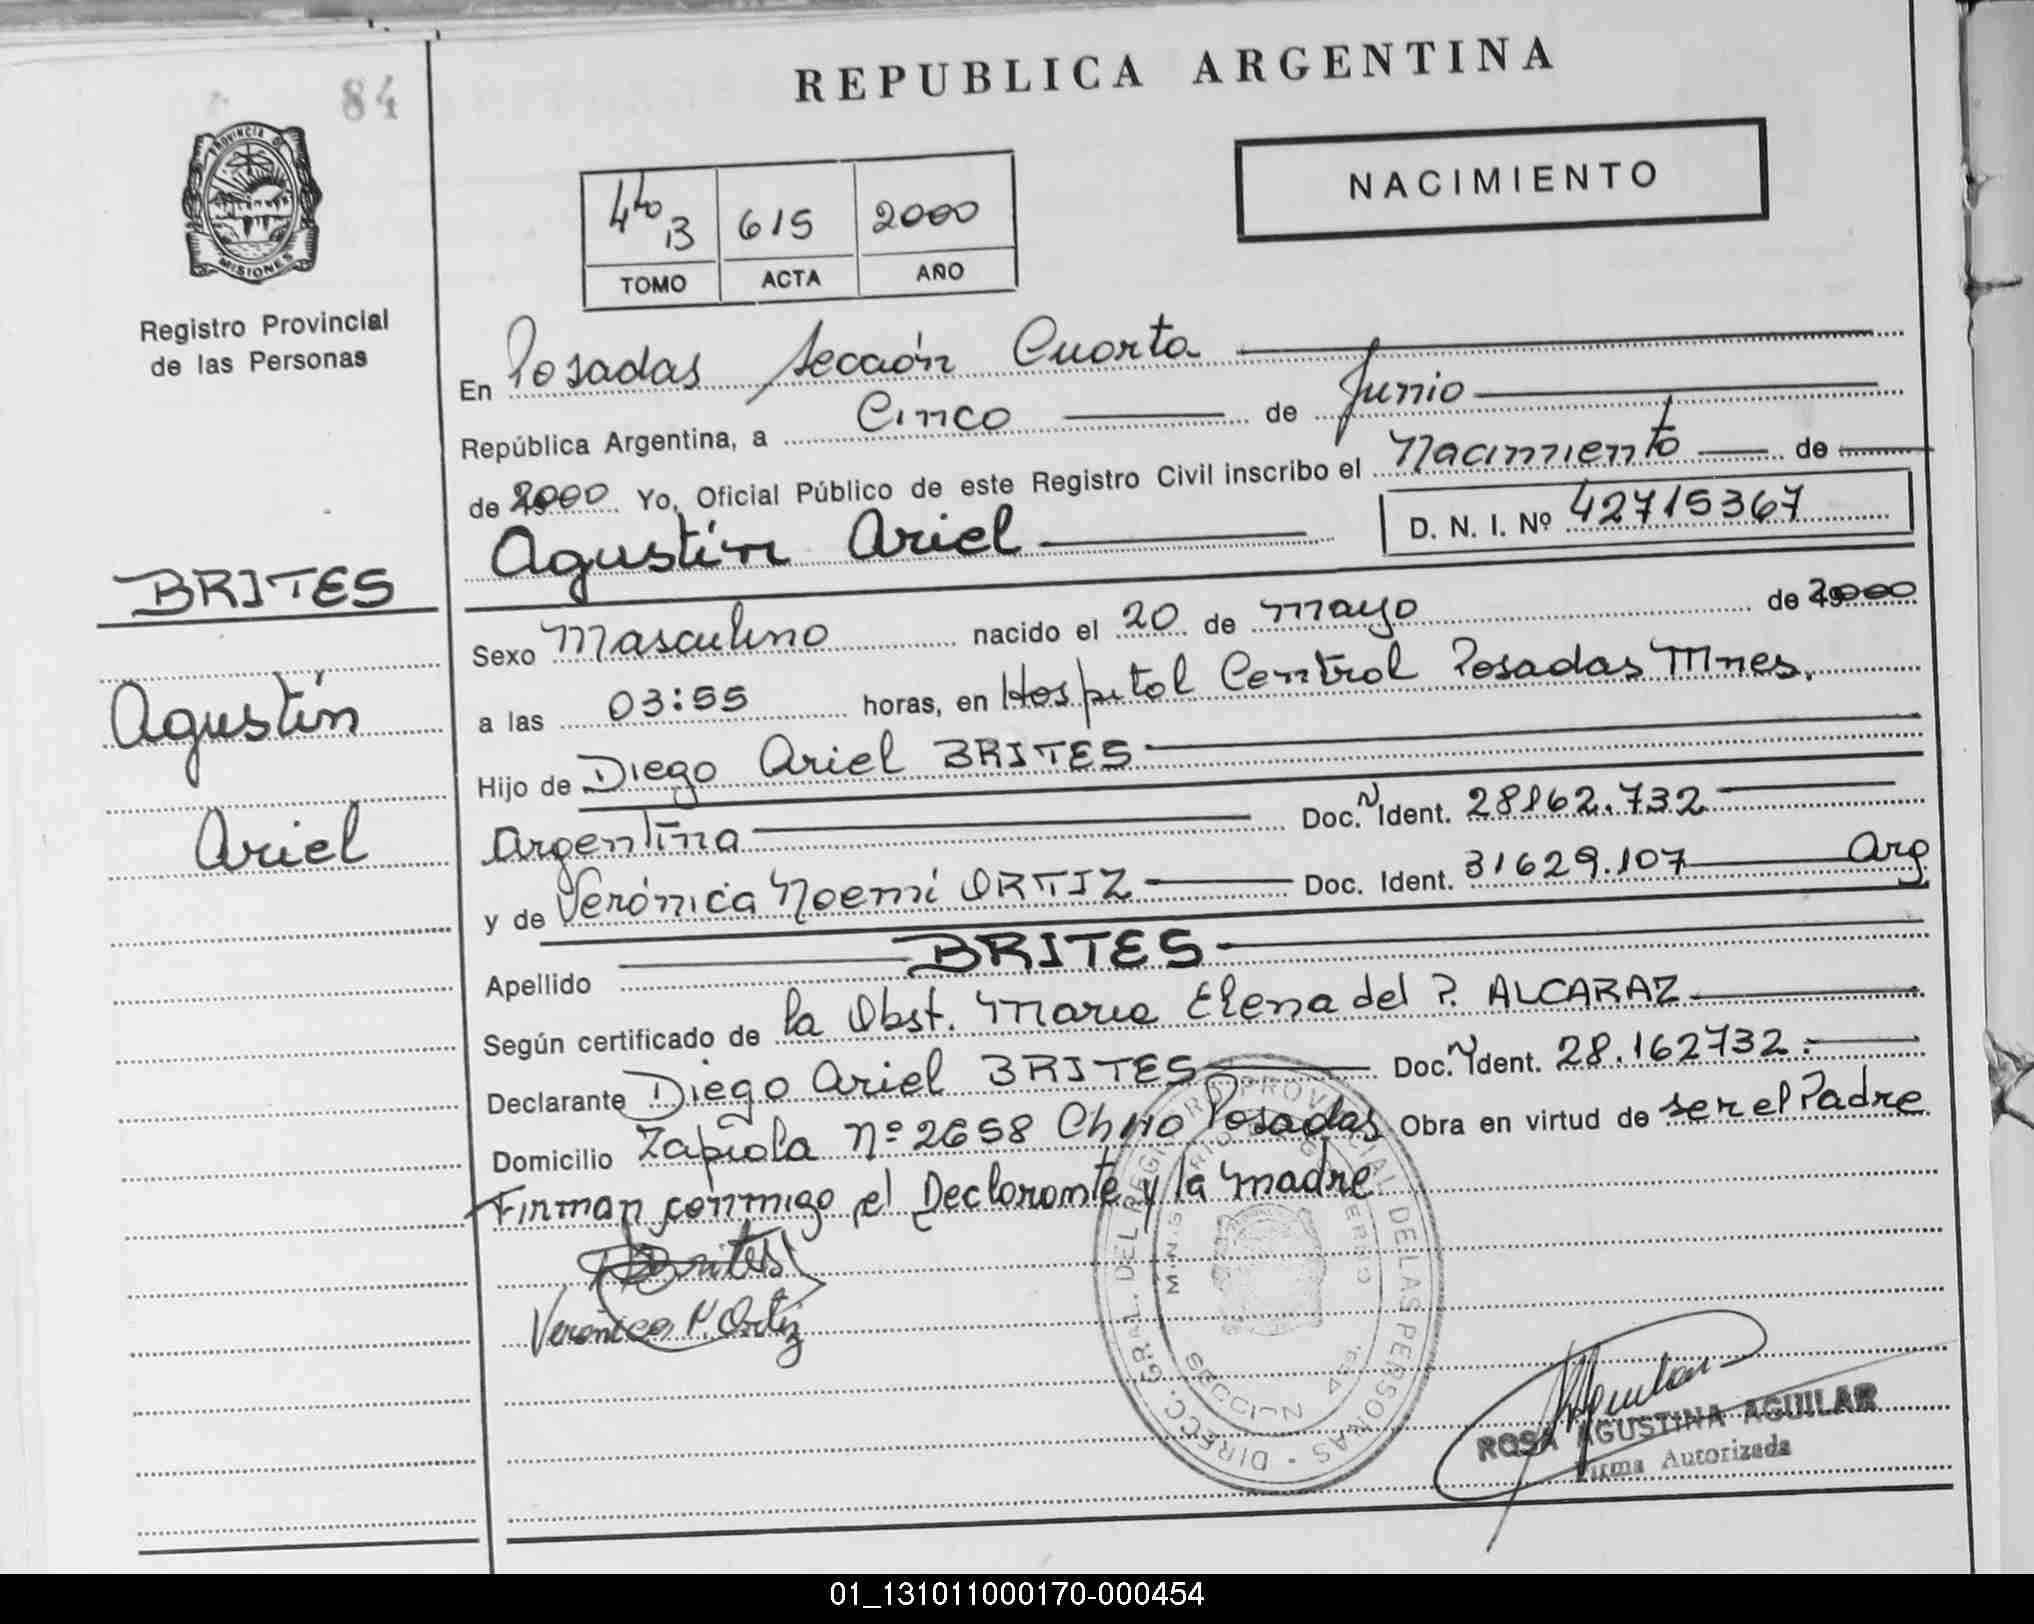 84
REPUBLICA ARGENTINA
PROVINCIA DE
MISIONES
Registro Provincial
de las Personas
NACIMIENTO
4to B 615 2000
TOMO ACTA AÑO
En Posadas Sección Cuarta
República Argentina, a Cinco de Junio
de 2000 Yo, Oficial Público de este Registro Civil inscribo el Nacimiento de
Agustín Ariel D. N. I. Nº 42715367
BRITES
Agustín
Ariel
Sexo Masculino nacido el 20 de mayo de 2000
a las 03:55 horas, en Hospital Central Posadas Mnes.
Hijo de Diego Ariel BRITES
Argentina Doc. N Ident. 28162.732
y de Verónica Noemí ORTIZ Doc. Ident. 31629.107 Arg
Apellido BRITES
Según certificado de la Obst. Maria Elena del P. ALCARAZ
Declarante Diego Ariel BRITES Doc. N Ident. 28.162732.
Domicilio Zapiola Nº 2658 Posadas Obra en virtud de ser el Padre
Firman conmigo el Declarante y la madre
Brites
Veronica N. Ortiz
DIRECC. GRAL. DEL REGISTRO PROVINCIAL DE LAS PERSONAS
ROSA AGUSTINA AGUILAR
Firma Autorizada
01_131011000170-000454